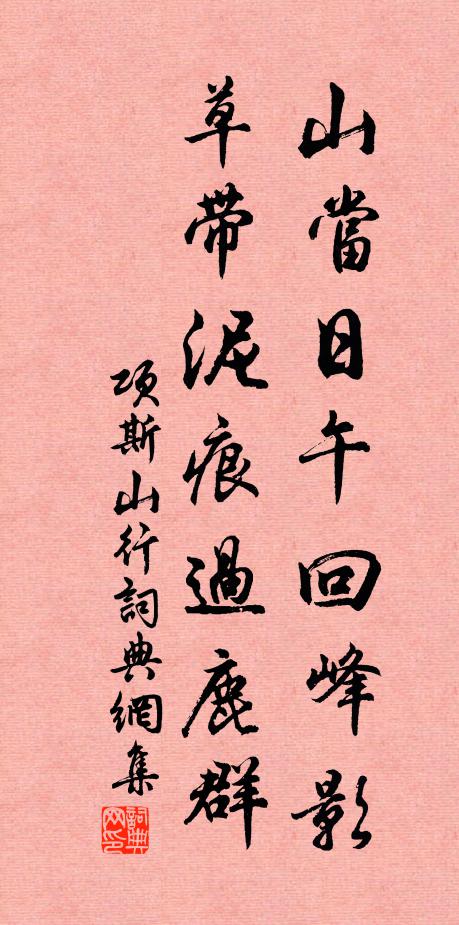 山當日午回峰影
草帶泥痕過鹿群
項斯山行詞典網集
詞典网印